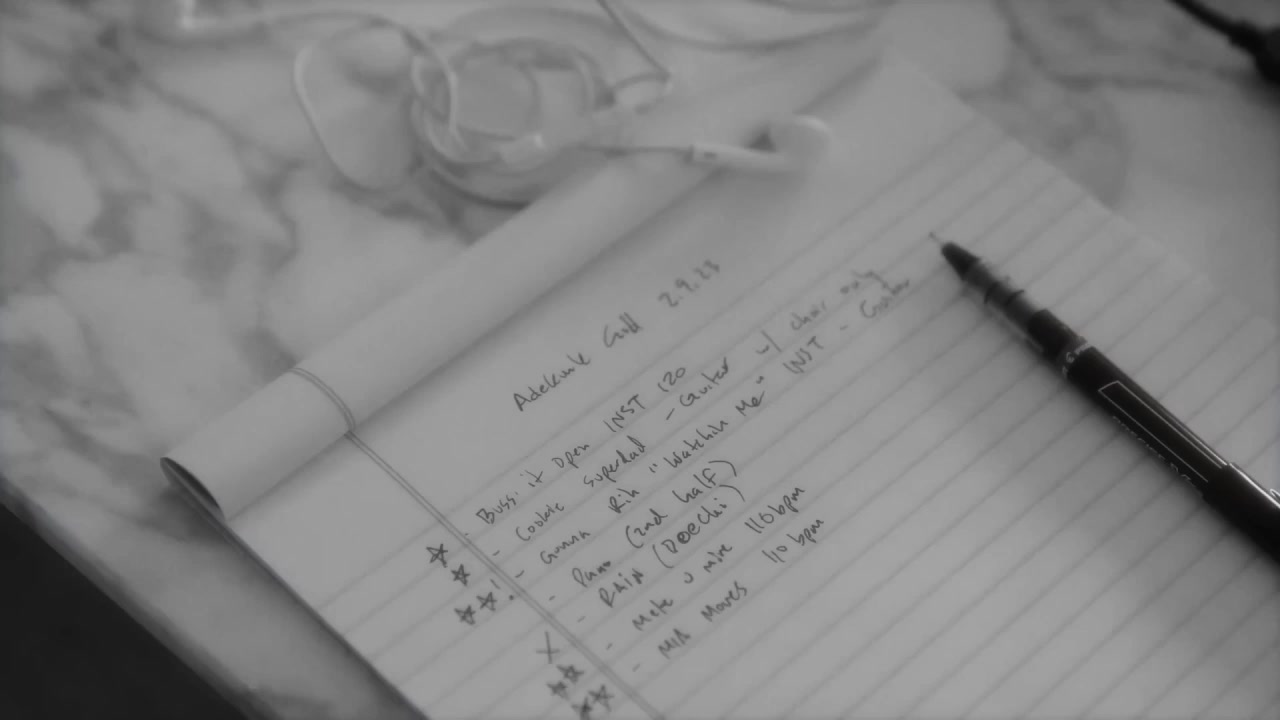 Adekunle Gold 2.9.23
- Buss it open INST 120
- Cookie Superdad - Guitar w/ choir only
- Gunna Rih "Watchin Me" INST - Guitar
- (2nd half)
- RAIN (DOECHii)
- Make u mine 110 bpm
- MIA Moves 110 bpm